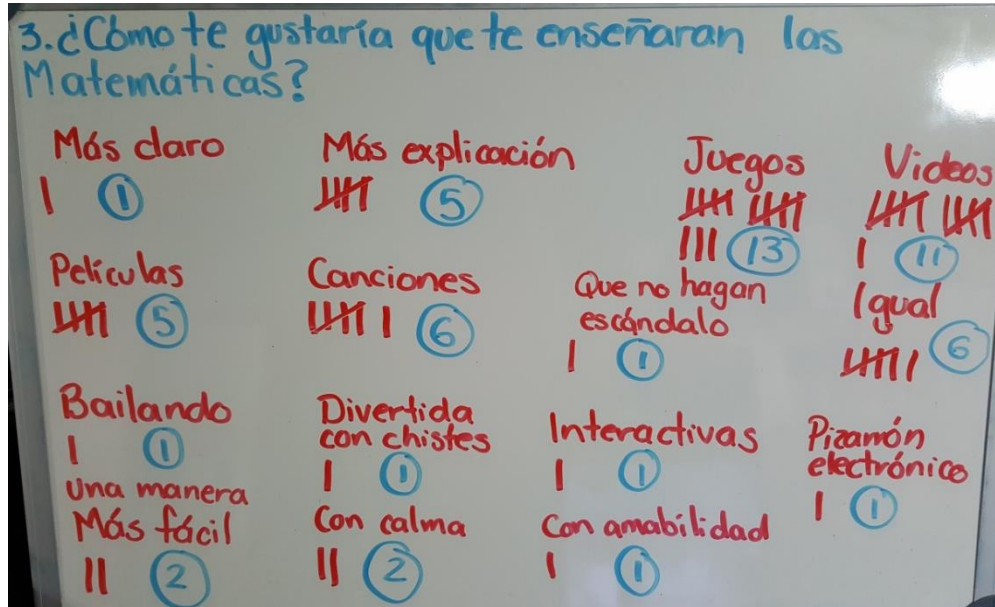 3. ¿Cómo te gustaría que te enseñaran las
Matemáticas?
Más claro
1
Más explicación
5
Juegos
13
Videos
11
Películas
5
Canciones
6
Que no hagan
escándalo
1
Igual
6
Bailando
1
Divertida
con chistes
1
Interactivas
1
Pizamón
electrónico
1
Una manera
Más fácil
2
Con calma
2
Con amabilidad
1